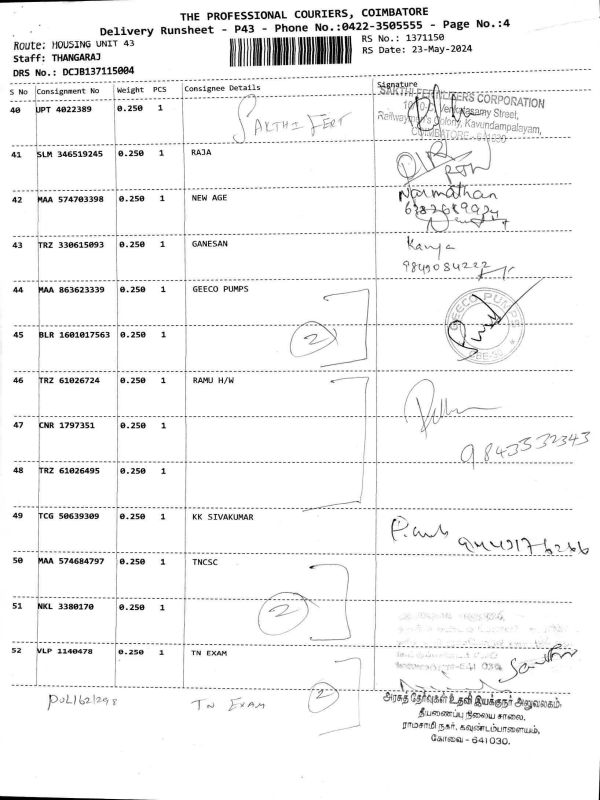 THE PROFESSIONAL COURIERS, COIMBATORE
Delivery Runsheet - P43 - Phone No.:0422-3505555 - Page No.:4
Route: HOUSING UNIT 43
RS No.: 1371150
Staff: THANGARAJ
RS Date: 23-May-2024
DRS No.: DCJB137115004
S No Consignment No Weight PCS Consignee Details Signature
40 UPT 4022389 0.250 1 SAKTHI FERT
SAKTHI FERTILIZERS CORPORATION
Venkatasamy Street,
Railwaymen's Colony, Kavundampalayam,
COIMBATORE - 641030
41 SLM 346519245 0.250 1 RAJA
42 MAA 574703398 0.250 1 NEW AGE Narmathan
43 TRZ 330615093 0.250 1 GANESAN Kanya
9849084222
44 MAA 863623339 0.250 1 GEECO PUMPS
GEECO PUMPS
45 BLR 1601017563 0.250 1 2
46 TRZ 61026724 0.250 1 RAMU H/W
47 CNR 1797351 0.250 1 9843332343
48 TRZ 61026495 0.250 1
49 TCG 50639309 0.250 1 KK SIVAKUMAR
50 MAA 574684797 0.250 1 TNCSC
51 NKL 3380170 0.250 1 2
52 VLP 1140478 0.250 1 TN EXAM
TN EXAM 2
அரசுத் தேர்வுகள் உதவி இயக்குநர் அலுவலகம்,
தீயணைப்பு நிலைய சாலை,
ராமசாமி நகர், கவுண்டம்பாளையம்,
கோவை - 641030.